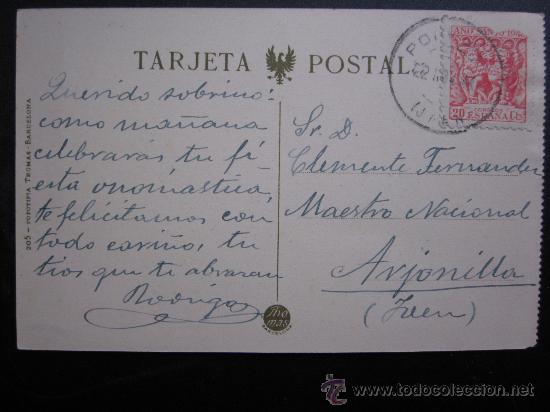 TARJETA POSTAL
205 - FOTOTIPIA THOMAS - BARCELONA
Querido sobrino:
como mañana
celebrarás tu fi-
esta onomástica,
te felicitamos con
todo cariño, tu
tios que te abrazan
Rodrigo
Sr. D.
Clemente Fernandez
Maestro Nacional
Arjonilla
(Jaen)
20 ESPAÑA Cs
CORREOS
Tho
mas
todocoleccion
www.todocoleccion.net